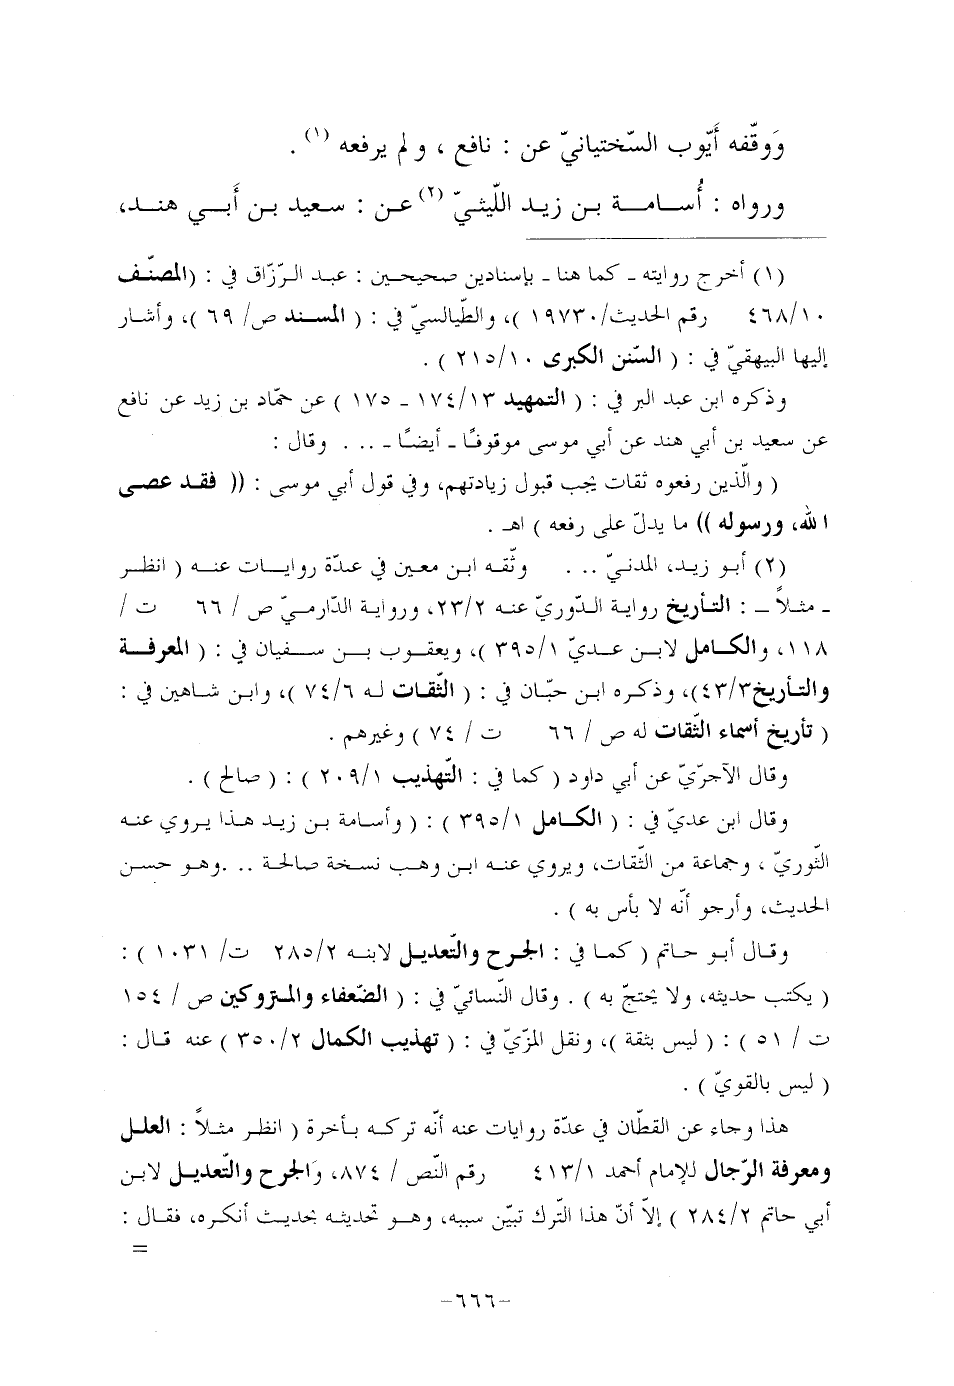 وَوقّفه أَيّوب السّختيانيّ عن : نافع ، و لم يرفعه (١) .
ورواه : أُسامة بن زيد اللّيثيّ (٢) عن : سعيد بن أَبي هند،
(١) أخرج روايته ـ كما هنا ـ بإسنادين صحيحين : عبد الرّزّاق في : (المصنّف
٤٦٨/١٠ رقم الحديث/١٩٧٣٠ )، والطّيالسيّ في : ( المسند ص/ ٦٩ )، وأشار
إليها البيهقيّ في : ( السّنن الكبرى ٢١٥/١٠ ) .
وذكره ابن عبد البر في : ( التمهيد ١٧٤/١٣ ـ ١٧٥ ) عن حمّاد بن زيد عن نافع
عن سعيد بن أبي هند عن أبي موسى موقوفًا ـ أيضًا ـ ... وقال :
( والّذين رفعوه ثقات يجب قبول زيادتهم، وفي قول أبي موسى : (( فقد عصى
الله، ورسوله )) ما يدلّ على رفعه ) اهـ .
(٢) أبو زيد، المدنيّ ... وثّقه ابن معين في عدّة روايات عنه ( انظر
ـ مثلاً ـ : التأريخ رواية الدّوريّ عنه ٢٣/٢، ورواية الدّارميّ ص / ٦٦ ت /
١١٨، والكامل لابن عديّ ٣٩٥/١ )، ويعقوب بن سفيان في : ( المعرفة
والتأريخ٤٣/٣)، وذكره ابن حبّان في : ( الثّقات له ٧٤/٦ )، وابن شاهين في :
( تأريخ أسماء الثّقات له ص / ٦٦ ت / ٧٤ ) وغيرهم .
وقال الآجرّيّ عن أبي داود ( كما في : التّهذيب ٢٠٩/١ ) : ( صالح ) .
وقال ابن عديّ في : ( الكامل ٣٩٥/١ ) : ( وأسامة بن زيد هذا يروي عنه
الثّوريّ ، وجماعة من الثّقات، ويروي عنه ابن وهب نسخة صالحة ... وهو حسن
الحديث، وأرجو أنّه لا بأس به ) .
وقال أبو حاتم ( كما في : الجرح والتّعديل لابنه ٢٨٥/٢ ت/ ١٠٣١ ) :
( يكتب حديثه، ولا يحتجّ به ) . وقال النّسائيّ في : ( الضّعفاء والمتروكين ص / ١٥٤
ت / ٥١ ) : ( ليس بثقة )، ونقل المزّيّ في : ( تهذيب الكمال ٣٥٠/٢ ) عنه قال :
( ليس بالقويّ ) .
هذا وجاء عن القطّان في عدّة روايات عنه أنّه تركه بأخرة ( انظر مثلاً : العلل
ومعرفة الرّجال للإمام أحمد ٤١٣/١ رقم النّص / ٨٧٤، والجرح والتّعديل لابن
أبي حاتم ٢٨٤/٢ ) إلاّ أنّ هذا الترك تبيّن سببه، وهو تحديثه بحديث أنكره، فقال :
=
-٦٦٦-